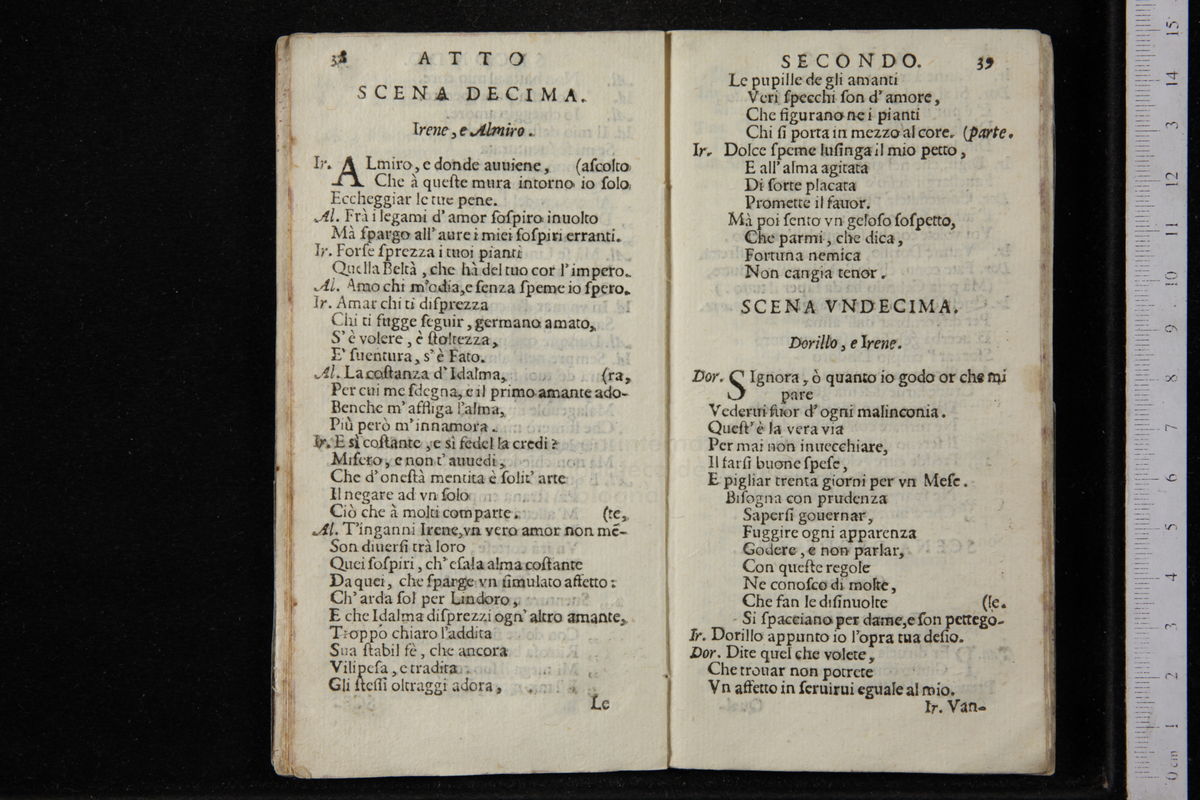 38 ATTO
SCENA DECIMA.
Irene, e Almiro.
Ir. ALmiro, e donde auuiene, (aſcolto
Che à queſte mura intorno io ſolo
Eccheggiar le tue pene.
Al. Frà i legami d'amor ſoſpiro inuolto
Mà ſpargo all'aure i miei ſoſpiri erranti.
Ir. Forſe ſprezza i tuoi pianti
Quella Beltà, che hà del tuo cor l'impero.
Al. Amo chi m'odia, e ſenza ſpeme io ſpero.
Ir. Amar chi ti diſprezza
Chi ti fugge ſeguir, germano amato,
S'è volere, è ſtoltezza,
E' ſuentura, s'è Fato.
Al. La coſtanza d'Idalma, (ra,
Per cui me ſdegna, e il primo amante ado-
Benche m'affliga l'alma,
Più però m'innamora.
Ir. E sì coſtante, e sì fedel la credi?
Miſero, e non t'auuedi,
Che d'oneſtà mentita è ſolit'arte
Il negare ad vn ſolo
Ciò che à molti comparte. (te,
Al. T'inganni Irene, vn vero amor non mẽ-
Son diuerſi trà loro
Quei ſoſpiri, ch'eſala alma coſtante
Da quei, che ſparge vn ſimulato affetto:
Ch'arda ſol per Lindoro,
E che Idalma diſprezzi ogn'altro amante,
Troppo chiaro l'addita
Sua ſtabil fè, che ancora
Vilipeſa, e tradita
Gli ſteſſi oltraggi adora,
Le
SECONDO. 39
Le pupille de gli amanti
Veri ſpecchi ſon d'amore,
Che figurano ne i pianti
Chi ſi porta in mezzo al core. (parte.
Ir. Dolce ſpeme luſinga il mio petto,
E all'alma agitata
Di ſorte placata
Promette il fauor.
Mà poi ſento vn geloſo ſoſpetto,
Che parmi, che dica,
Fortuna nemica
Non cangia tenor.
SCENA VNDECIMA.
Dorillo, e Irene.
Dor. SIgnora, ò quanto io godo or che mi
pare
Vederui fuor d'ogni malinconia.
Queſt'è la vera via
Per mai non inuecchiare,
Il farſi buone ſpeſe,
E pigliar trenta giorni per vn Meſe.
Biſogna con prudenza
Saperſi gouernar,
Fuggire ogni apparenza
Godere, e non parlar,
Con queſte regole
Ne conoſco di molte,
Che fan le diſinuolte (le.
Si ſpacciano per dame, e ſon pettego-
Ir. Dorillo appunto io l'opra tua deſio.
Dor. Dite quel che volete,
Che trouar non potrete
Vn affetto in ſeruirui eguale al mio.
Ir. Van-
0 cm 1 2 3 4 5 6 7 8 9 10 11 12 13 14 15